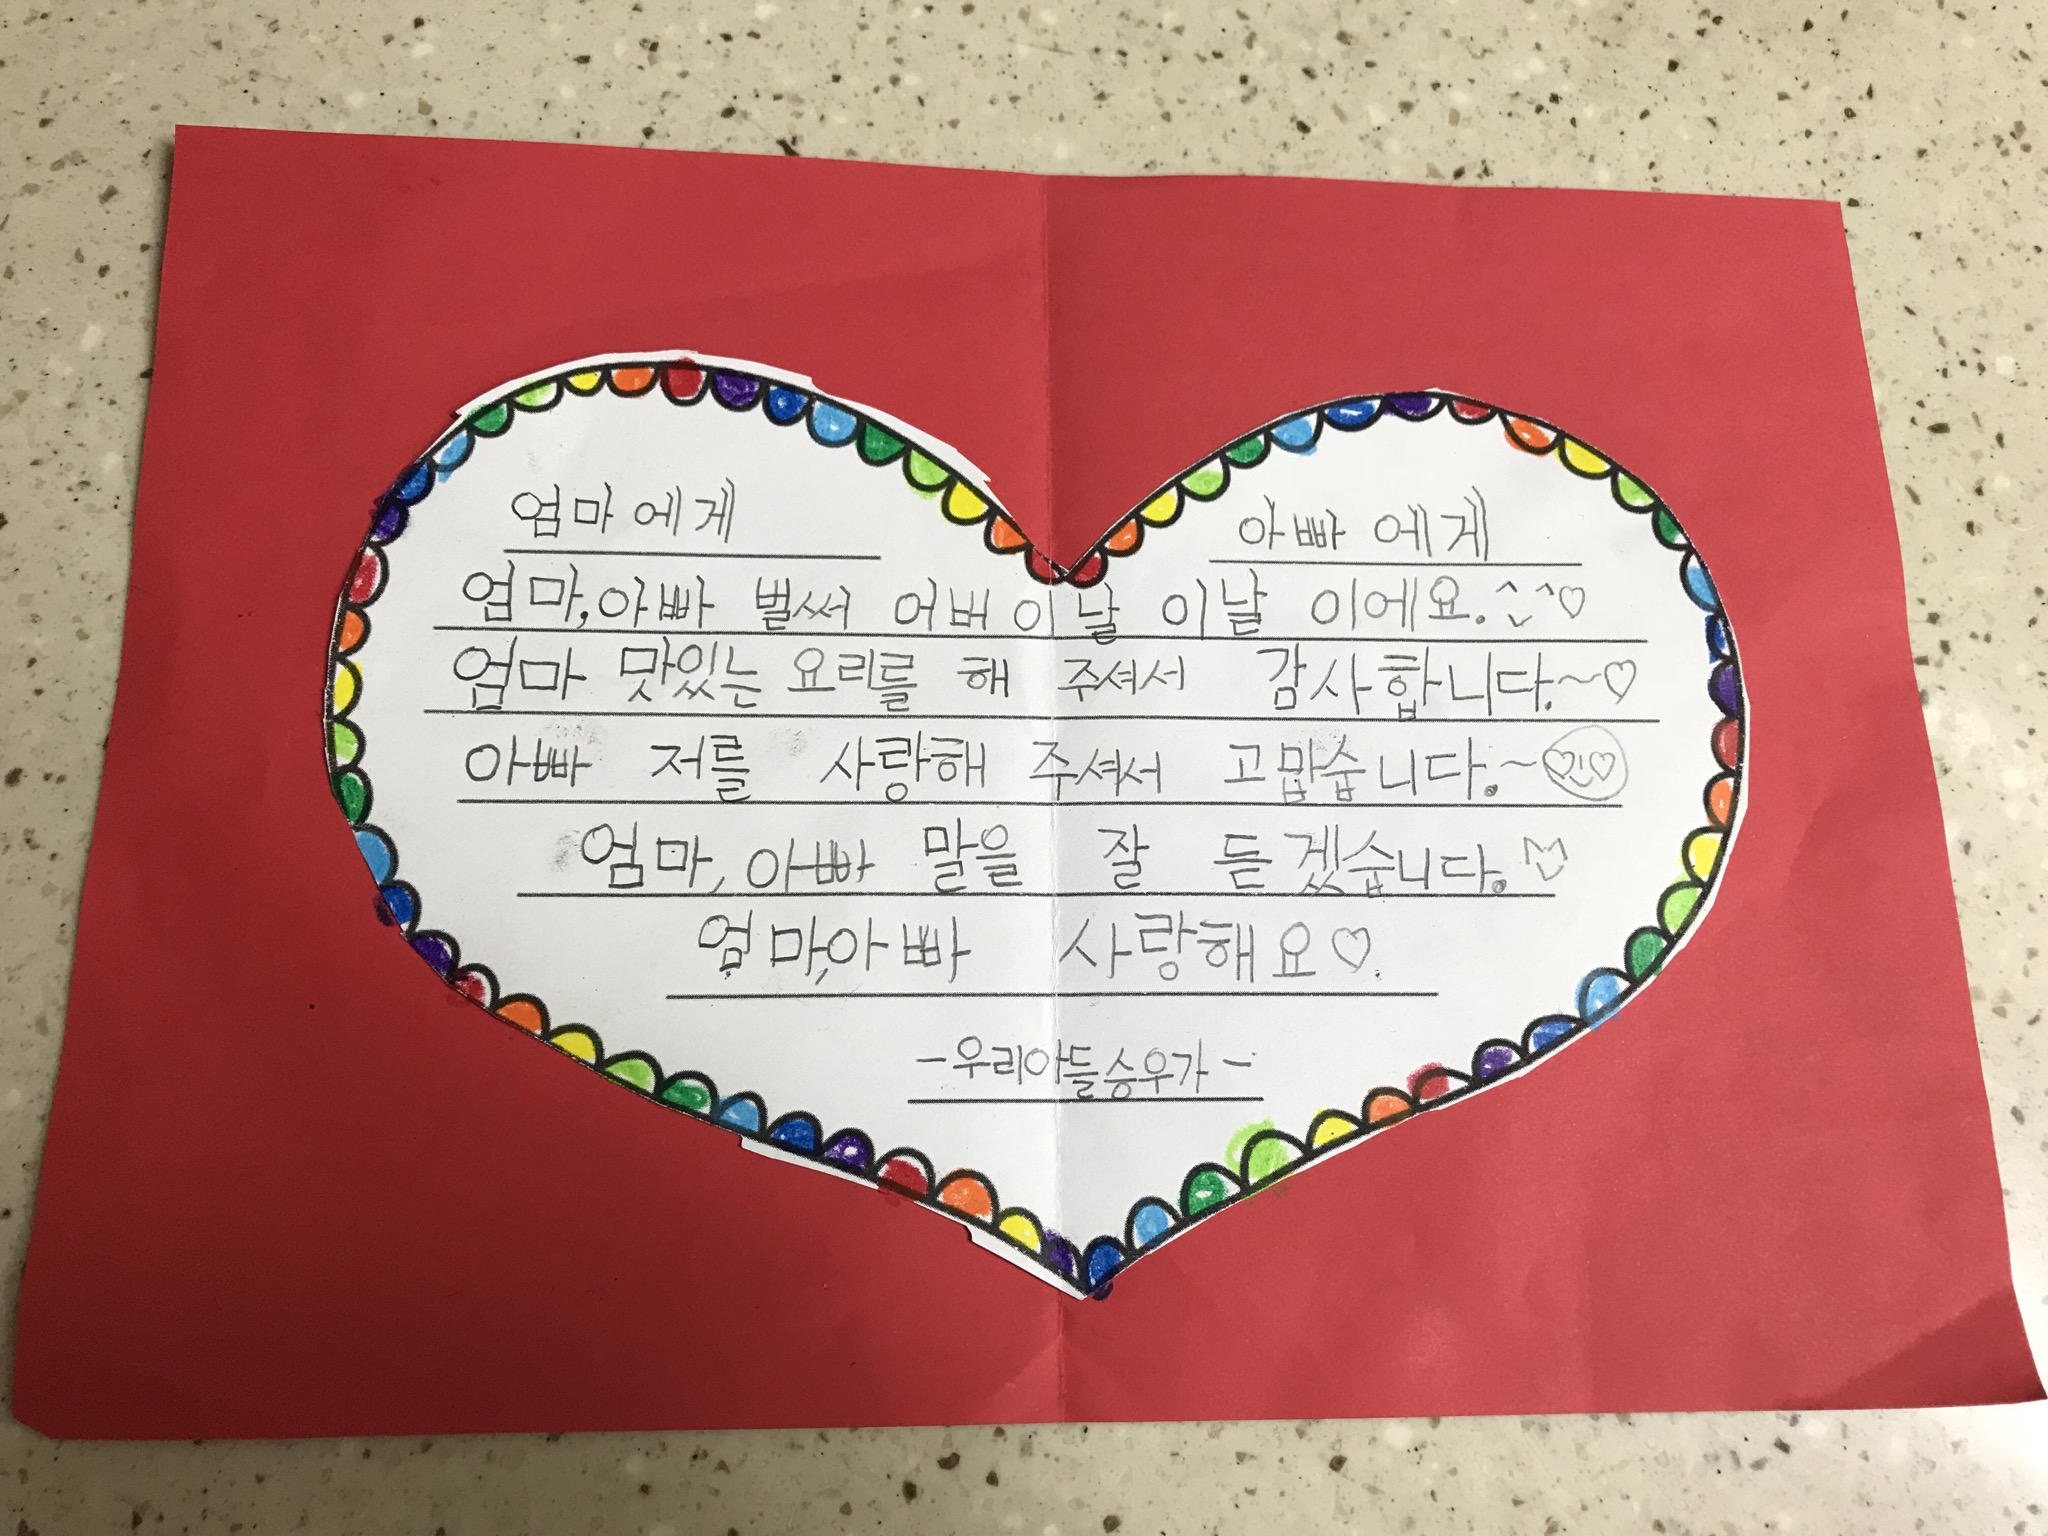 엄마에게
아빠에게
엄마,아빠 벌써 어버이날 이날 이에요.^^♡
엄마 맛있는 요리를 해 주셔서 감사합니다.~♡
아빠 저를 사랑해 주셔서 고맙습니다.~
엄마, 아빠 말을 잘 듣겠습니다.
엄마,아빠 사랑해요♡
-우리아들승우가-